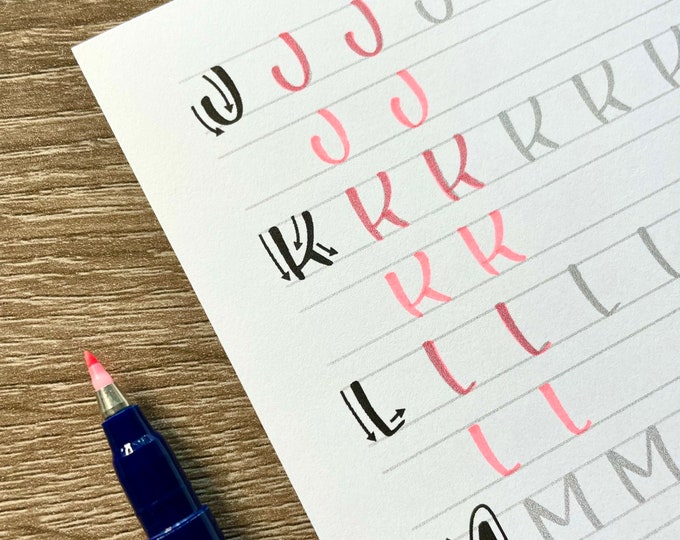 J J J J
J J
K K K K K K
K K
L L L L L
L L
M M M